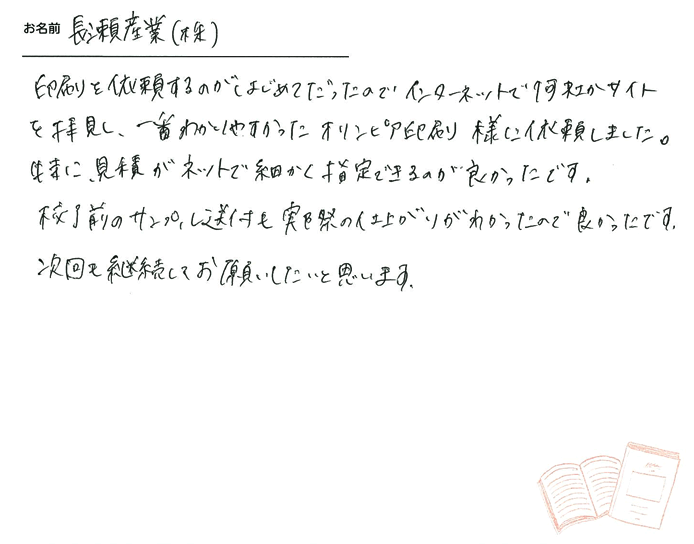 お名前 長瀬産業(株)
印刷を依頼するのがはじめてだったのでインターネットで何社かサイト
を拝見し、一番わかりやすかったオリンピア印刷様に依頼しました。
特に、見積がネットで細かく指定できるのが良かったです。
校了前のサンプル送付も実際の仕上がりがわかったので良かったです。
次回も継続してお願いしたいと思います。